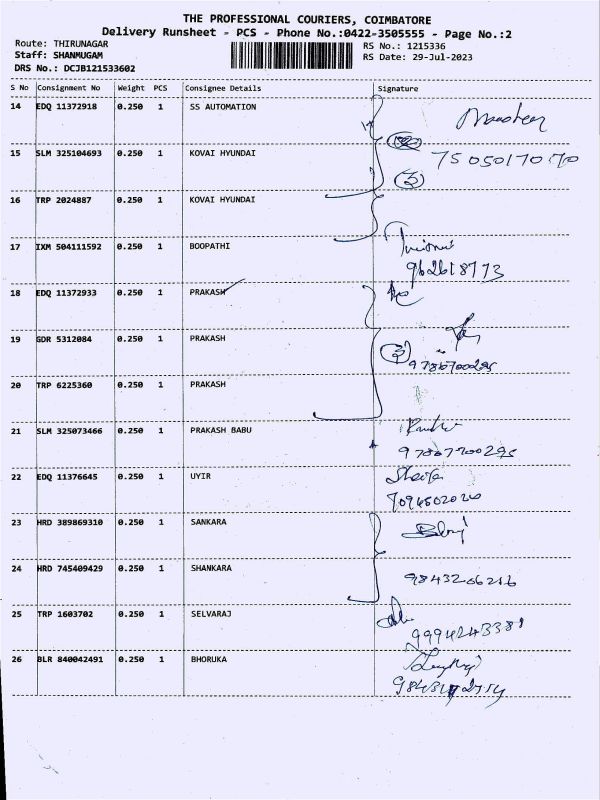 THE PROFESSIONAL COURIERS, COIMBATORE
Delivery Runsheet - PCS - Phone No.:0422-3505555 - Page No.:2
Route: THIRUNAGAR
Staff: SHANMUGAM
DRS No.: DCJB121533602
RS No.: 1215336
RS Date: 29-Jul-2023
S No Consignment No Weight PCS Consignee Details Signature
14 EDQ 11372918 0.250 1 SS AUTOMATION
15 SLM 325104693 0.250 1 KOVAI HYUNDAI
16 TRP 2024887 0.250 1 KOVAI HYUNDAI
17 IXM 504111592 0.250 1 BOOPATHI
18 EDQ 11372933 0.250 1 PRAKASH
19 GDR 5312084 0.250 1 PRAKASH
9786700295
20 TRP 6225360 0.250 1 PRAKASH
21 SLM 325073466 0.250 1 PRAKASH BABU
22 EDQ 11376645 0.250 1 UYIR
23 HRD 389869310 0.250 1 SANKARA
24 HRD 745409429 0.250 1 SHANKARA
9843206216
25 TRP 1603702 0.250 1 SELVARAJ
9994243381
26 BLR 840042491 0.250 1 BHORUKA